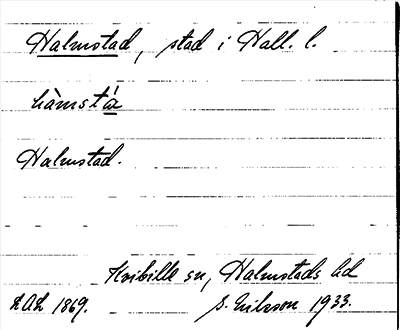 Halmstad, stad i Hall. l.
hàmstá
Halmstad.
Kvibille sn, Halmstads hd
LAL 1869. S. Eriksson 1933.